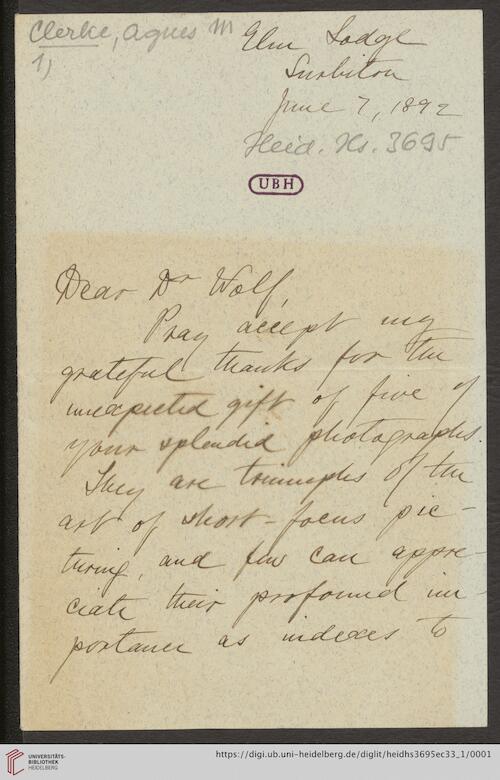 Clerke, Agnes M
1)
Elm Lodge
Surbiton
June 7, 1892
Heid. Hs. 3695
UBH
Dear Dr Wolf,
Pray accept my
grateful thanks for the
unexpected gift of five of
your splendid photographs.
They are triumphs of the
art of short-focus pic-
turing, and few can appre-
ciate their profound im-
portance as indexes to
UNIVERSITÄTS-
BIBLIOTHEK
HEIDELBERG
https://digi.ub.uni-heidelberg.de/diglit/heidhs3695ec33_1/0001